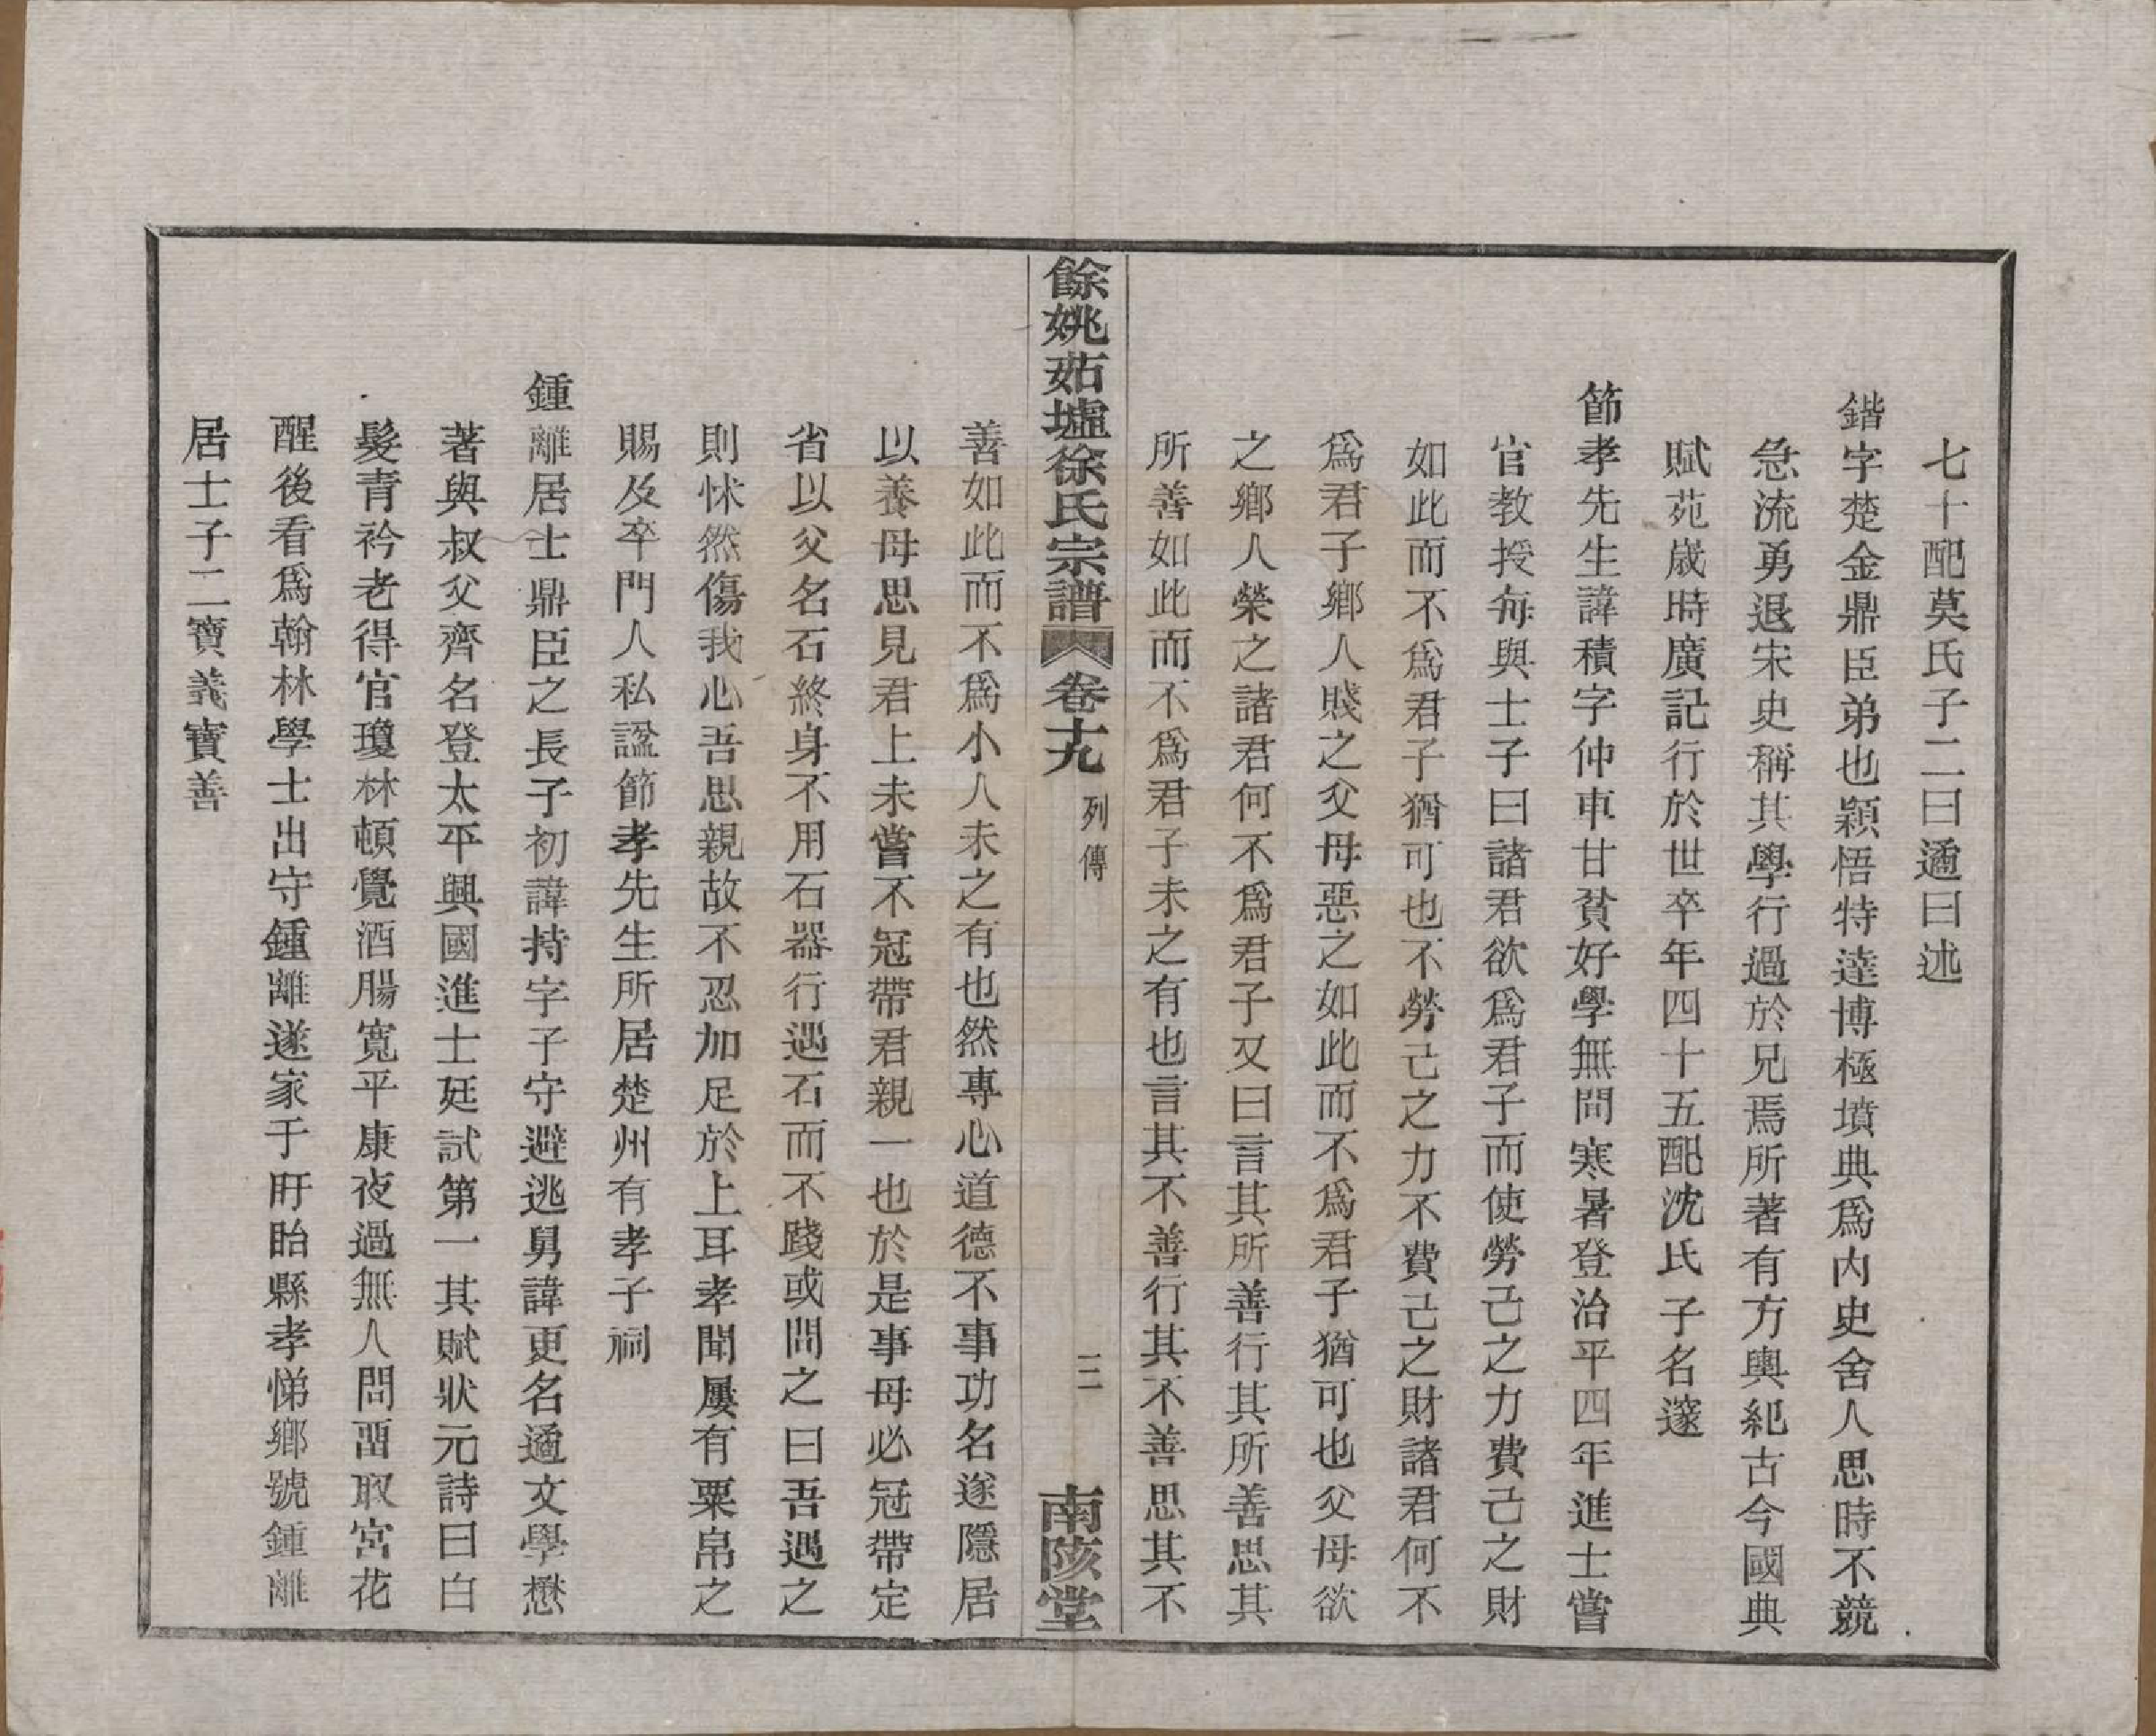 七十配莫氏子二曰遹曰述
鍇字楚金鼎臣弟也穎悟特達博極墳典爲內史舍人思時不競
急流勇退宋史稱其學行過於兄焉所著有方輿紀古今國典
賦苑歲時廣記行於世卒年四十五配沈氏子名邃
節孝先生諱積字仲車甘貧好學無間寒暑登治平四年進士嘗
官教授每與士子曰諸君欲爲君子而使勞己之力費己之財
如此而不爲君子猶可也不勞己之力不費己之財諸君何不
爲君子鄉人賤之父母惡之如此而不爲君子猶可也父母欲
之鄉人榮之諸君何不爲君子又曰言其所善行其所善思其
所善如此而不爲君子未之有也言其不善行其不善思其不
餘姚茹墟徐氏宗譜 卷十九 列傳 三 南陔堂
善如此而不爲小人未之有也然專心道德不事功名遂隱居
以養母思見君上未嘗不冠帶君親一也於是事母必冠帶定
省以父名石終身不用石器行遇石而不踐或問之曰吾遇之
則怵然傷我心吾思親故不忍加足於上耳孝聞屢有粟帛之
賜及卒門人私諡節孝先生所居楚州有孝子祠
鍾離居士鼎臣之長子初諱持字子守避逃舅諱更名遹文學懋
著與叔父齊名登太平興國進士廷試第一其賦狀元詩曰白
髮青衿老得官瓊林頓覺酒腸寬平康夜過無人問畱取宮花
醒後看爲翰林學士出守鍾離遂家于盱眙縣孝悌鄉號鍾離
居士子二寶義寶善